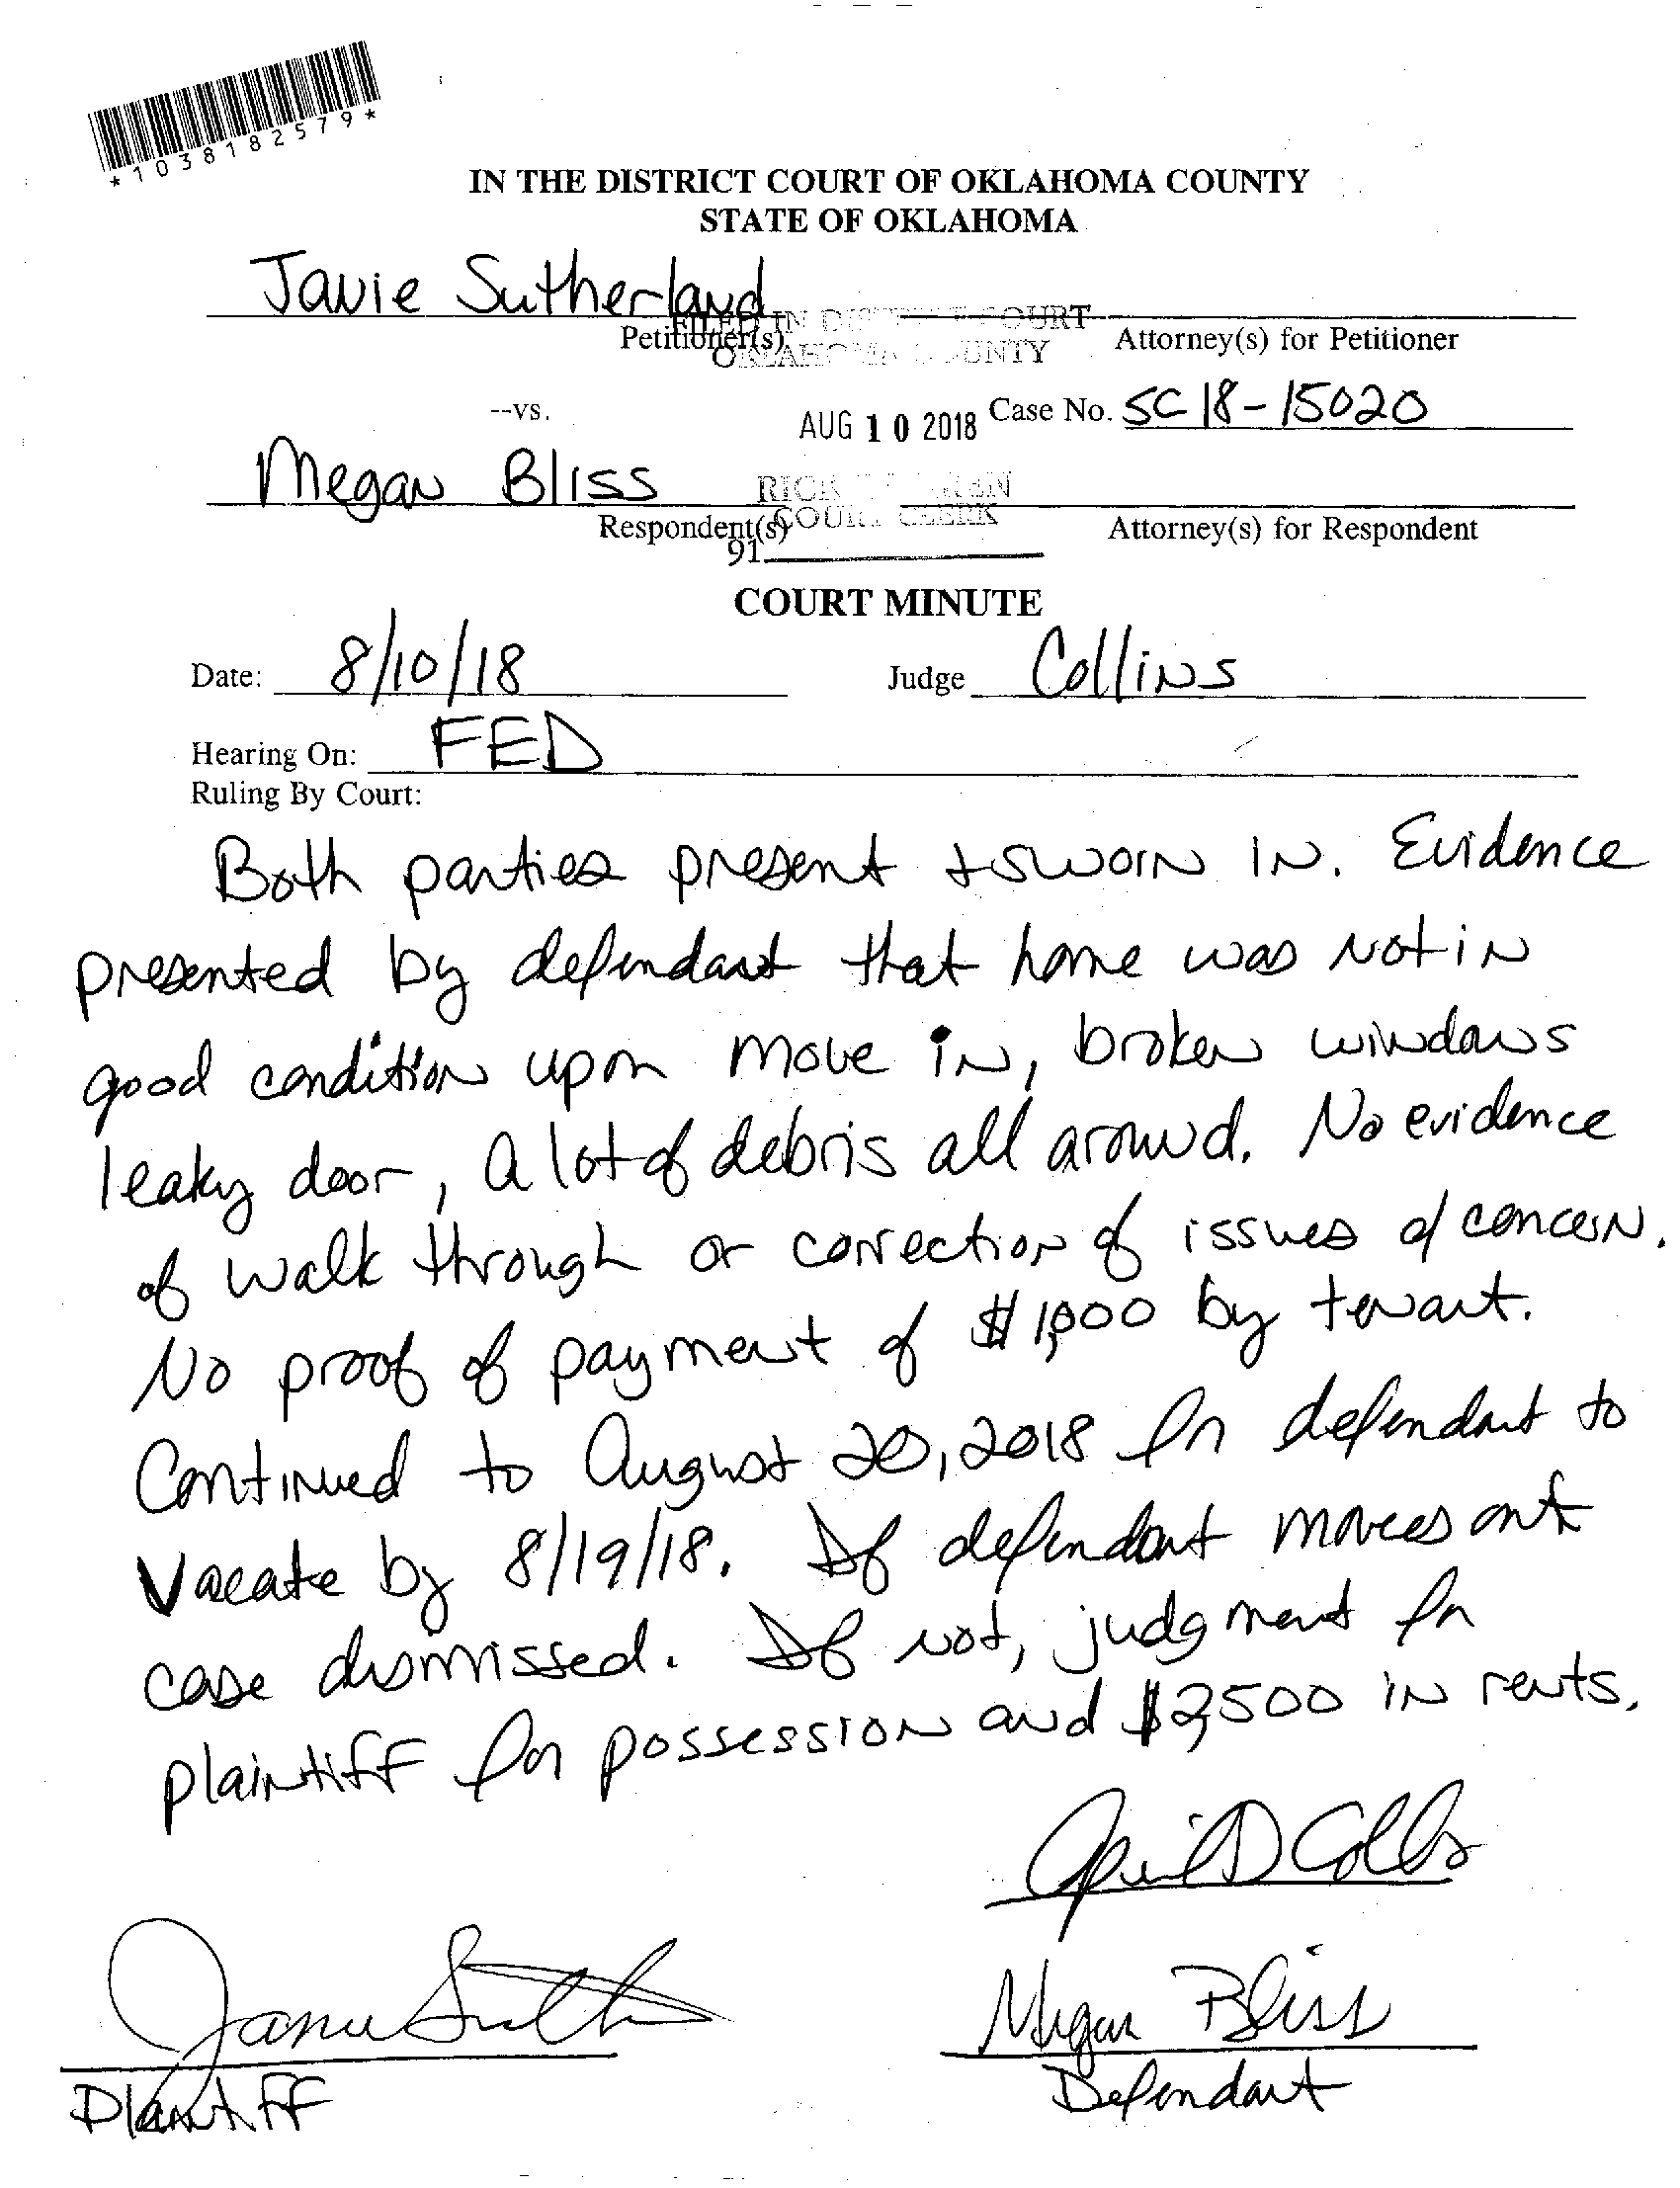 *1038182579*
IN THE DISTRICT COURT OF OKLAHOMA COUNTY
STATE OF OKLAHOMA
Janie Sutherland
FILED IN DISTRICT COURT
Petitioner(s) Attorney(s) for Petitioner
OKLAHOMA COUNTY
--vs. AUG 10 2018 Case No. SC 18-15020
Megan Bliss
RICK WARREN
COURT CLERK
Respondent(s) Attorney(s) for Respondent
91
COURT MINUTE
Date: 8/10/18 Judge Collins
Hearing On: FED
Ruling By Court:
Both parties present + sworn in. Evidence
presented by defendant that home was not in
good condition upon move in, broken windows
leaky door, a lot of debris all around. No evidence
of walk through or correction of issues of concern.
No proof of payment of $1,000 by tenant.
Continued to August 20, 2018 for defendant to
vacate by 8/19/18. If defendant moves out
case dismissed. If not, judgment for
plaintiff for possession and $2,500 in rents.
Megan Bliss
Plaintiff Defendant